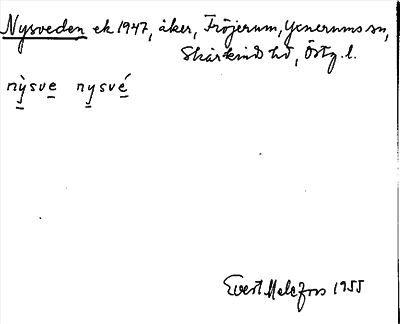 Nysveden ek 1947, åker, Fröjerum, Yxnerums sn,
Skärkinds hd, Östg. l.
nỳsve nysvé
Evert Melefors 1955